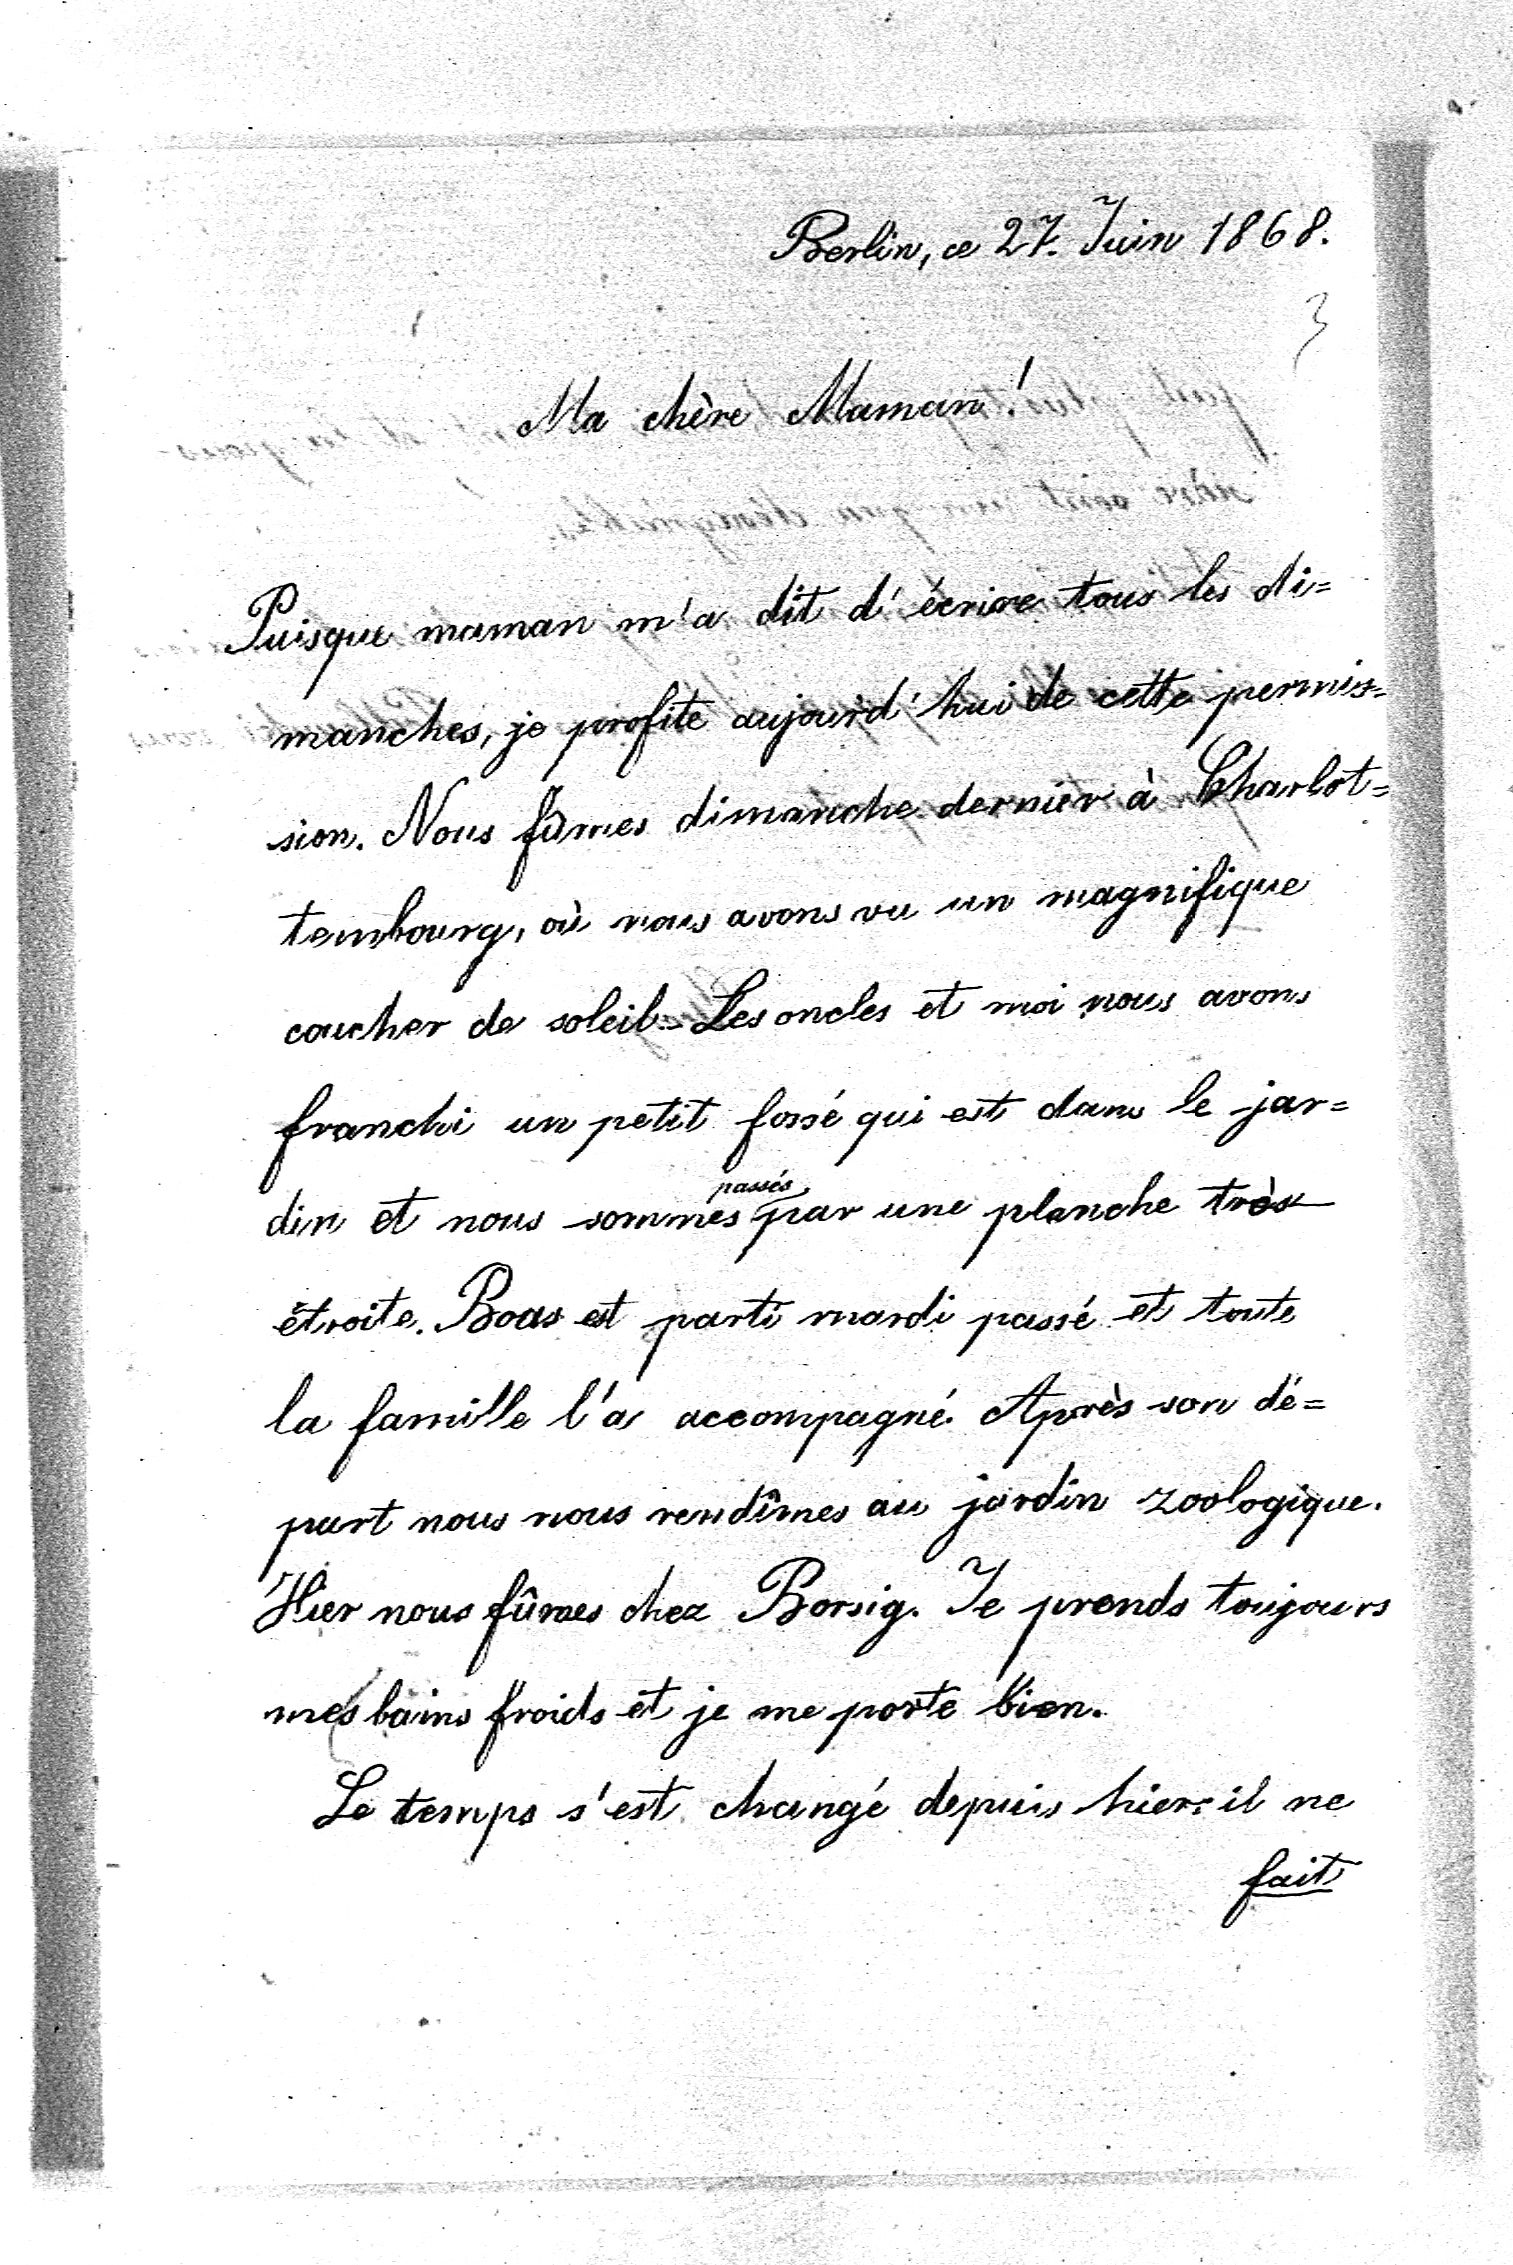 Berlin, ce 27. Juin 1868.
3
Ma chère Maman!
Puisque maman m'a dit d'écrire tous les di=
manches, je profite aujourd'hui de cette permis=
sion. Nous fûmes dimanche dernier à Charlot=
tembourg, où nous avons vu un magnifique
coucher de soleil. Les oncles et moi nous avons
franchi un petit fossé qui est dans le jar=
din et nous sommes passés par une planche très
étroite. Boas est parti mardi passé et toute
la famille l'a accompagné. Après son dé=
part nous nous rendîmes au jardin zoologique.
Hier nous fûmes chez Borsig. Je prends toujours
mes bains froids et je me porte bien.
Le temps s'est changé depuis hier: il ne
fait